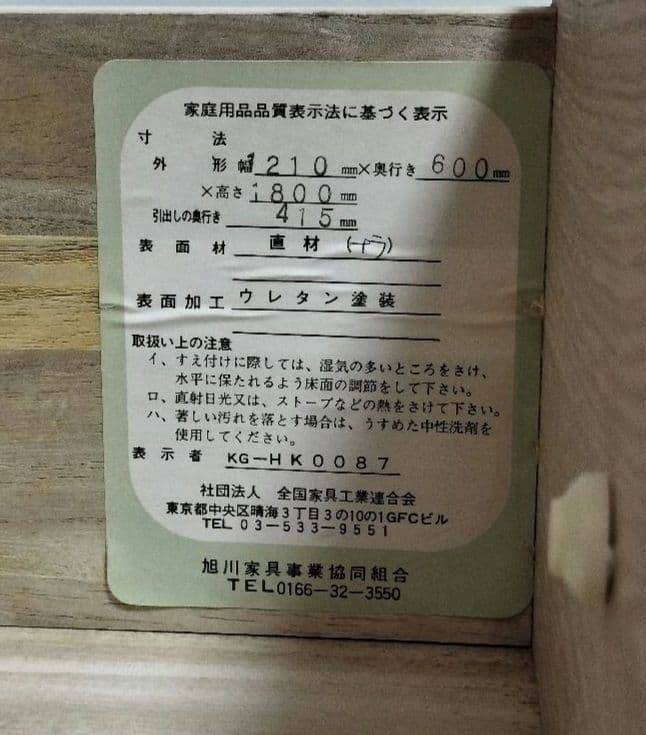 家庭用品品質表示法に基づく表示
寸法
外形 幅1210mm×奥行き600mm
×高さ1800mm
引出しの奥行き 415mm
表面材 直材 (ナラ)
表面加工 ウレタン塗装
取扱い上の注意
イ、すえ付けに際しては、湿気の多いところをさけ、
水平に保たれるよう床面の調節をして下さい。
ロ、直射日光又は、ストーブなどの熱をさけて下さい。
ハ、著しい汚れを落とす場合は、うすめた中性洗剤を
使用してください。
表示者 KG-HK0087
社団法人 全国家具工業連合会
東京都中央区晴海3丁目3の10の1GFCビル
TEL 03-533-9551
旭川家具事業協同組合
TEL0166-32-3550